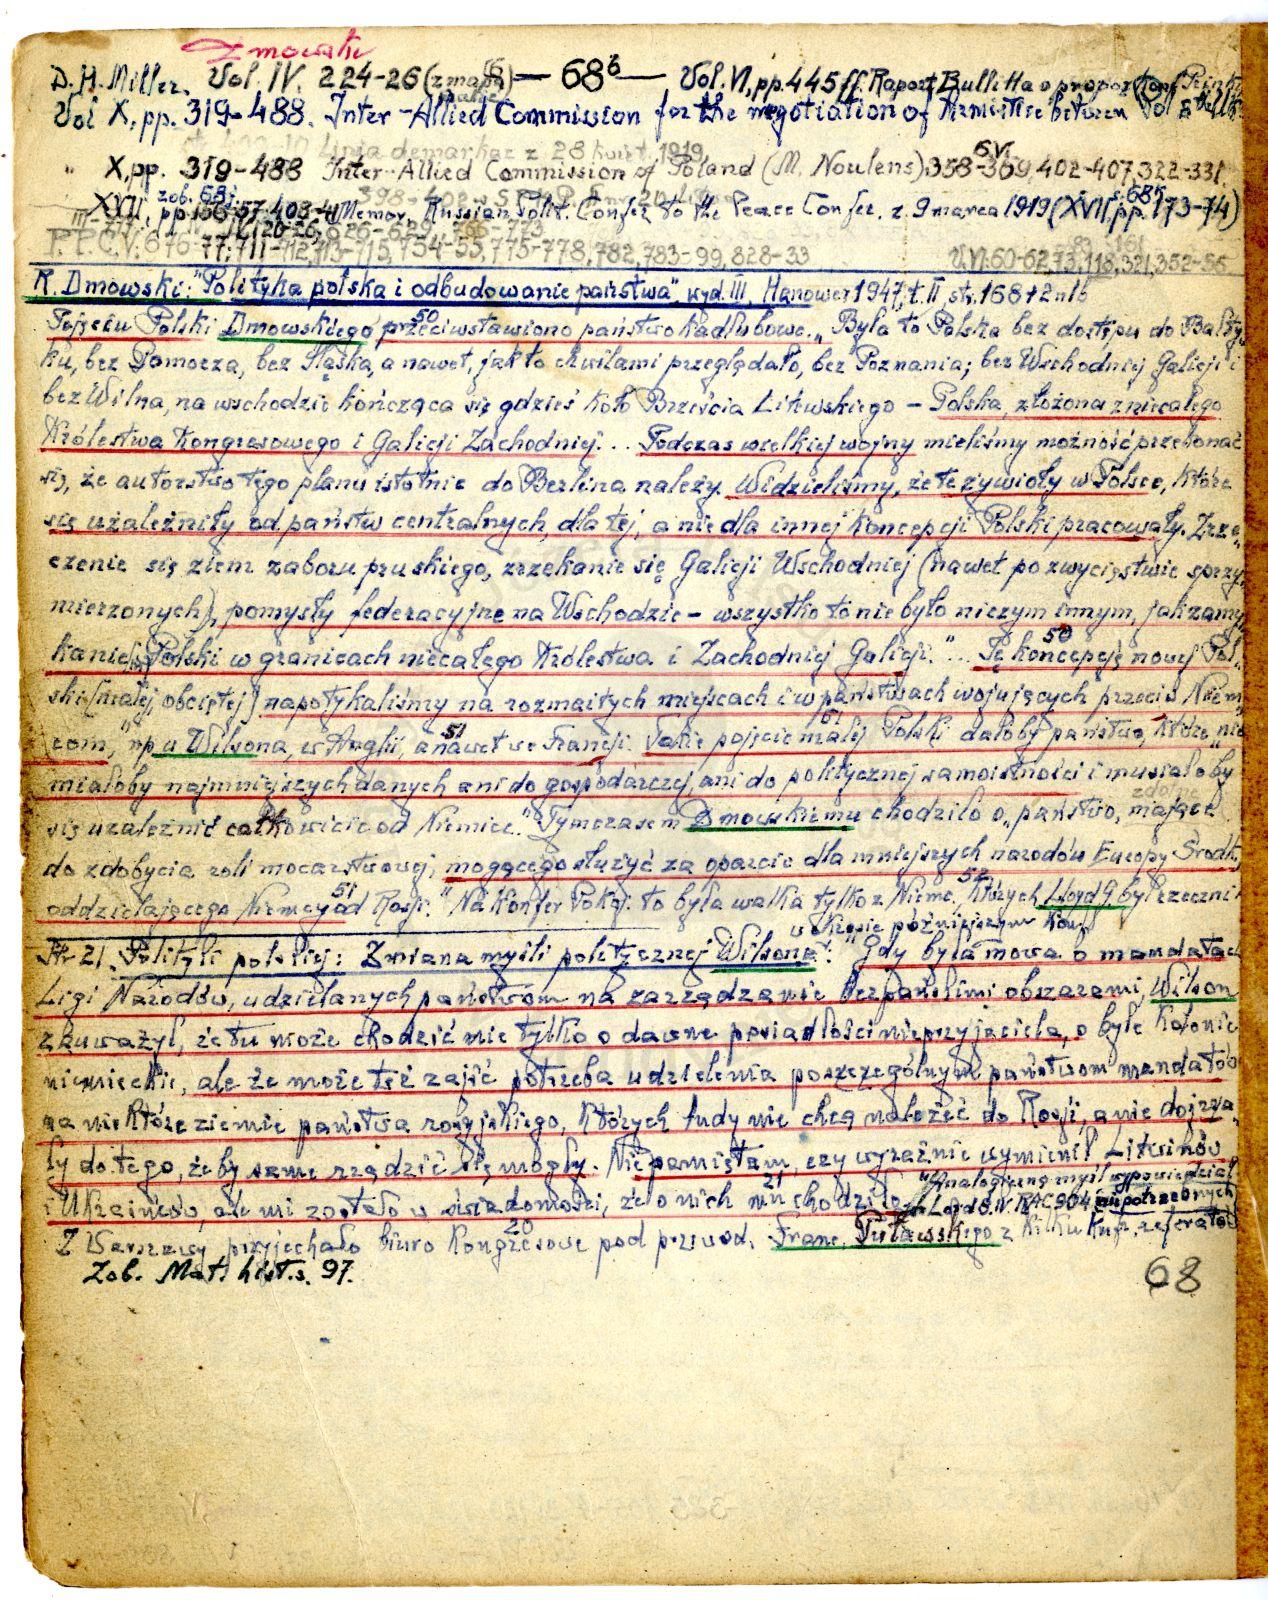 Dmowski
D. H. Miller. Vol. IV. 224-26 (z mapą) — 68⁶ — Vol. VI, pp. 445 ff. Raport Bullitta o propoz.
Vol X, pp. 319-488. Inter-Allied Commission for the negotiation of Armistice between Pol
Linja demarkac z 28 kwiet. 1919
" X, pp. 319-488 Inter-Allied Commission of Poland (M. Noulens) 6.VI. 358-369, 402-407, 322-331
zob. 68j s. 68k
XVII, pp. 403-4 Memor. Russian Polit. Confer. to the Peace Confer. z 9 marca 1919 (XVII, pp. 173-74)
626-629
P. P. C. V. 676-77, 711-712, 713-715, 754-55, 775-778, 782, 783-99, 828-33 U. VI. 60-62, 73, 118, 321, 352-56
R. Dmowski: "Polityka polska i odbudowanie państwa". wyd. III, Hanower 1947, t. II, str. 168+2 nlb
Pojęciu Polski Dmowskiego przeciwstawiono państwo kadłubowe. 50 „Była to Polska bez dostępu do Bałty-
ku, bez Pomorza, bez Śląska, a nawet, jak to chwilami przeglądało, bez Poznania; bez Wschodniej Galicji i
bez Wilna, na wschodzie kończąca się gdzieś koło Brześcia Litewskiego – Polska, złożona z niecałego
Królestwa Kongresowego i Galicji Zachodniej"... Podczas wielkiej wojny mieliśmy możność przekonać
się, że autorstwo tego planu istotnie do Berlina należy. Widzieliśmy, że te żywioły w Polsce, które
się uzależniły od państw centralnych, dla tej, a nie dla innej koncepcji Polski pracowały. Zrze-
czenie się ziem zaboru pruskiego, zrzekanie się Galicji Wschodniej (nawet po zwycięstwie sprzy-
mierzonych), pomysły federacyjne na Wschodzie – wszystko to nie było niczym innym, jak zamy-
kaniem Polski w granicach niecałego Królestwa i Zachodniej Galicji." 50 ... Tę koncepcję nowej Pol-
ski (małej, obciętej) napotykaliśmy na rozmaitych miejscach i w państwach wojujących przeciw Niem-
com, np. u Wilsona, w Anglii, a nawet we Francji. 51 Takie pojęcie małej Polski dałoby państwo, które „nie
miałoby najmniejszych danych ani do gospodarczej, ani do politycznej samoistności i musiałoby
się uzależnić całkowicie od Niemiec." 51 Tymczasem Dmowskiemu chodziło o „państwo, mające zdolne
do zdobycia roli mocarstwowej, mogącego służyć za oparcie dla mniejszych narodów Europy Środk.,
oddzielającego Niemcy od Rosji." 51 Na Konfer Pokoj. to była walka tylko z Niemc. 52 których Lloyd G. był rzeczni-
w okresie późniejszym Konf.
Str 21. Polityki polskiej: Zmiana myśli politycznej Wilsona: "Gdy była mowa o mandatach
Ligi Narodów, udzielanych państwom na zarządzanie bezpańskimi obszarami, Wilson
zauważył, że tu może chodzić nie tylko o dawne posiadłości nieprzyjaciela, o byłe kolonie
niemieckie, ale że może też zajść potrzeba udzielenia poszczególnym państwom mandatów
na niektóre ziemie państwa rosyjskiego, których ludy nie chcą należeć do Rosji, a nie dojrza-
ły do tego, żeby same rządzić się mogły. Nie pamiętam, czy wyraźnie wymienił Litwinów
i Ukraińców, ale mi zostało w świadomości, że o nich mu chodziło. 21 Analogiczną myśl wypowiedział
Z Warszawy przyjechało biuro Kongresowe pod przewod. 20 Franc. Pułaskiego z kilku kufr. referatów niepotrzebnych
Zob. Mat. hist. s. 97. 68